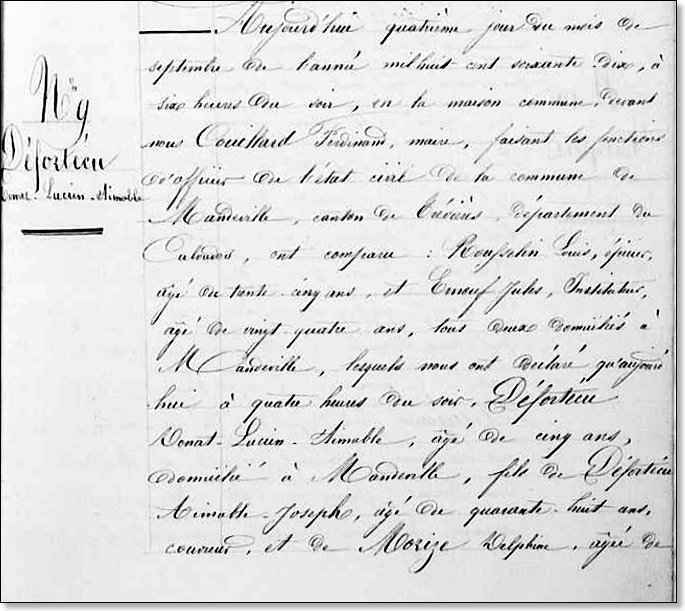 Aujourd'hui quatrième jour du mois de
septembre de l'année mil huit cent soixante dix, à
six heures du soir, en la maison commune, devant
nous Couillard Ferdinand, maire, faisant les fonctions
d'officier de l'état civil de la commune de
Mandeville, canton de Trévières, département du
Calvados, ont comparu : Rousselin Louis, épicier,
âgé de trente cinq ans, et Ernouf Jules, Instituteur,
âgé de vingt-quatre ans, tous deux domiciliés à
Mandeville, lesquels nous ont déclaré qu'aujourd
hui à quatre heures du soir, Défortécu
Donat-Lucien-Aimable, âgé de cinq ans,
domicilié à Mandeville, fils de Défortécu
Aimable-Joseph, âgé de quarante-huit ans,
couvreur, et de Morize Delphine, âgée de
N° 9
Défortécu
Donat-Lucien-Aimable